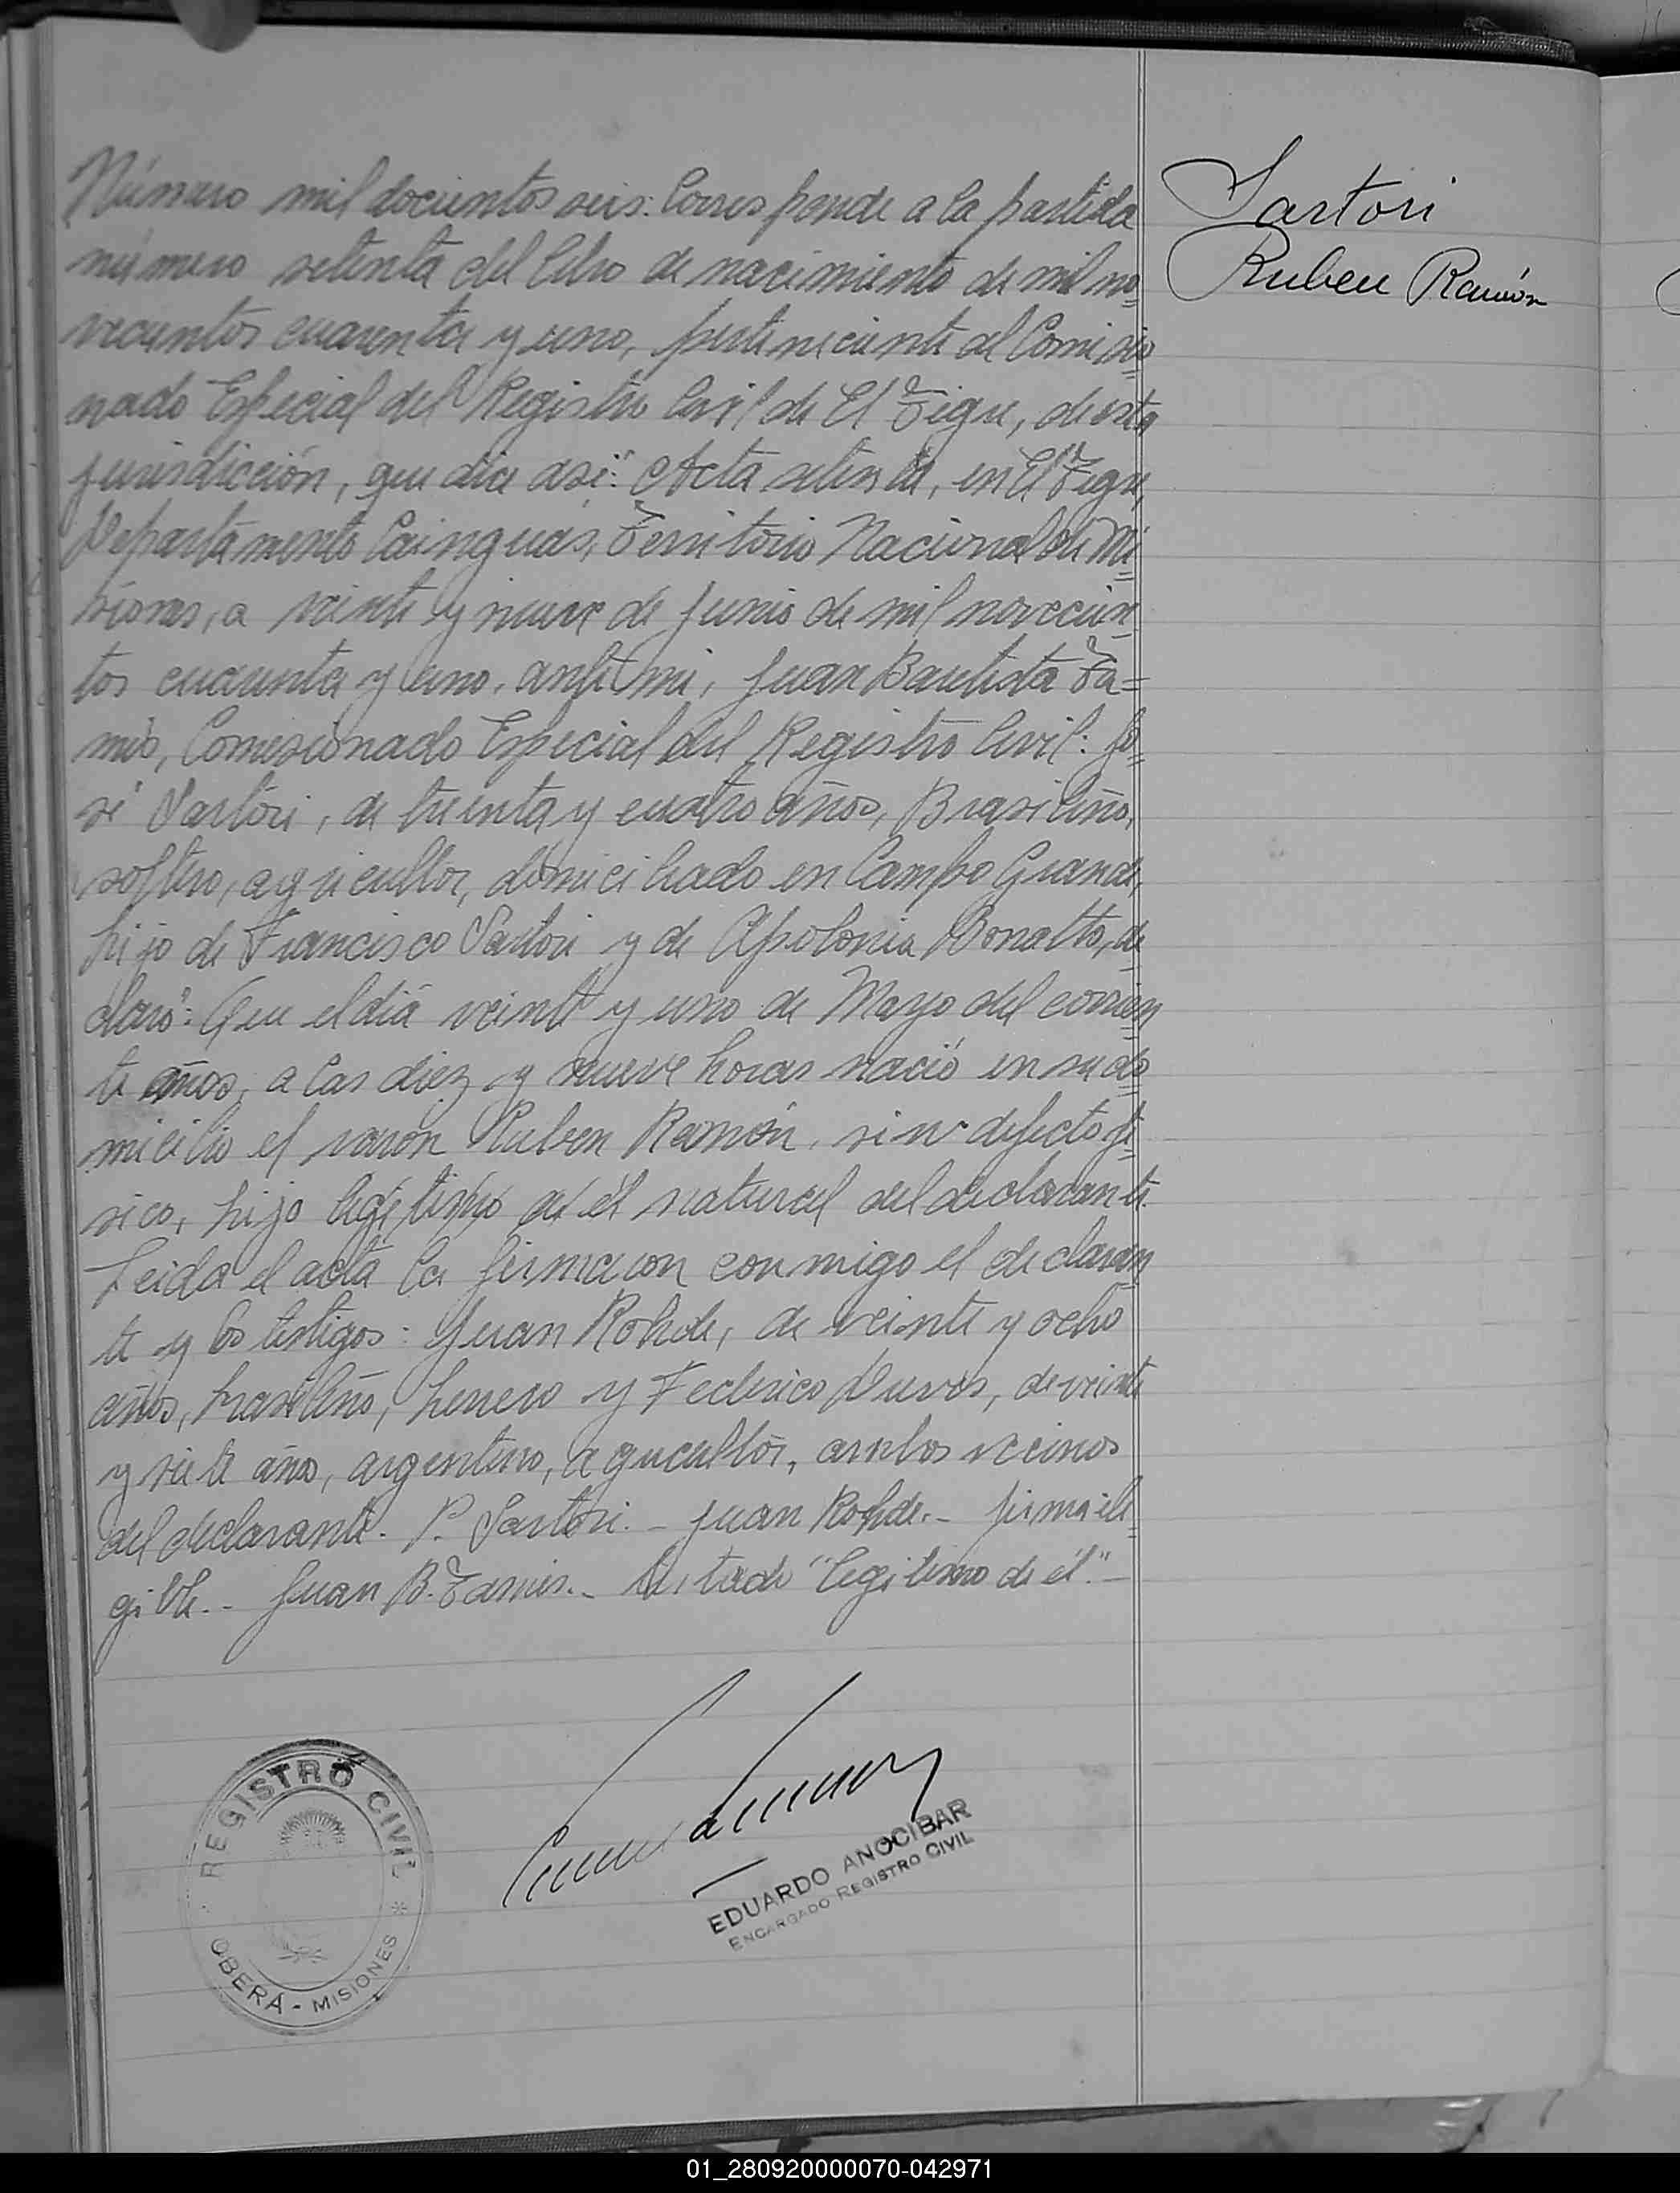 Número mil docientos seis: Corresponde a la partida
número setenta del libro de nacimiento de mil no=
vecientos cuarenta y uno, perteneciente al Comisio=
nado Especial del Registro Civil de El Tigre, de esta
jurisdicción, que dice así: "Acta setenta, en El Tigre,
Departamento Cainguás, Territorio Nacional de Mi=
siones, a veinte y nueve de Junio de mil novecien=
tos cuarenta y uno, ante mi, Juan Bautista Ta=
mis, Comisionado Especial del Registro Civil: Jo=
sé Sartori, de treinta y cuatro años, Brasileño,
soltero, agricultor, domiciliado en Campo Grande,
hijo de Francisco Sartori y de Apolonia Bonatto, de=
claró: Que el día veinte y uno de Mayo del corrien=
te años, a las diez y nueve horas nació en su do=
micilio el varon Ruben Ramón, sin defecto fí=
sico, hijo legítimo de él natural del declarante.
Leida el acta la firmaron conmigo el declaran=
te y los testigos: Juan Rohde, de veinte y ocho
años, brasileño, herrero y Federico , de veinte
y siete año, argentino, agricultor, ambos vecinos
del declarante. P. Sartori.- Juan Rohde.- firma ile=
gible.- Juan B. Tamis.- Testado "legitimo de él".-
Sartori
Ruben Ramón
REGISTRO CIVIL
OBERÁ - MISIONES
EDUARDO ANOCIBAR
ENCARGADO REGISTRO CIVIL
01_280920000070-042971